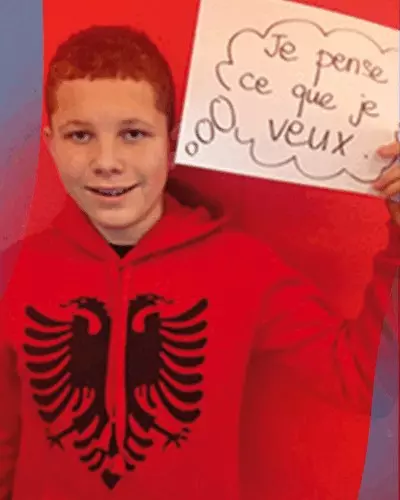 Je pense
ce que je
veux.